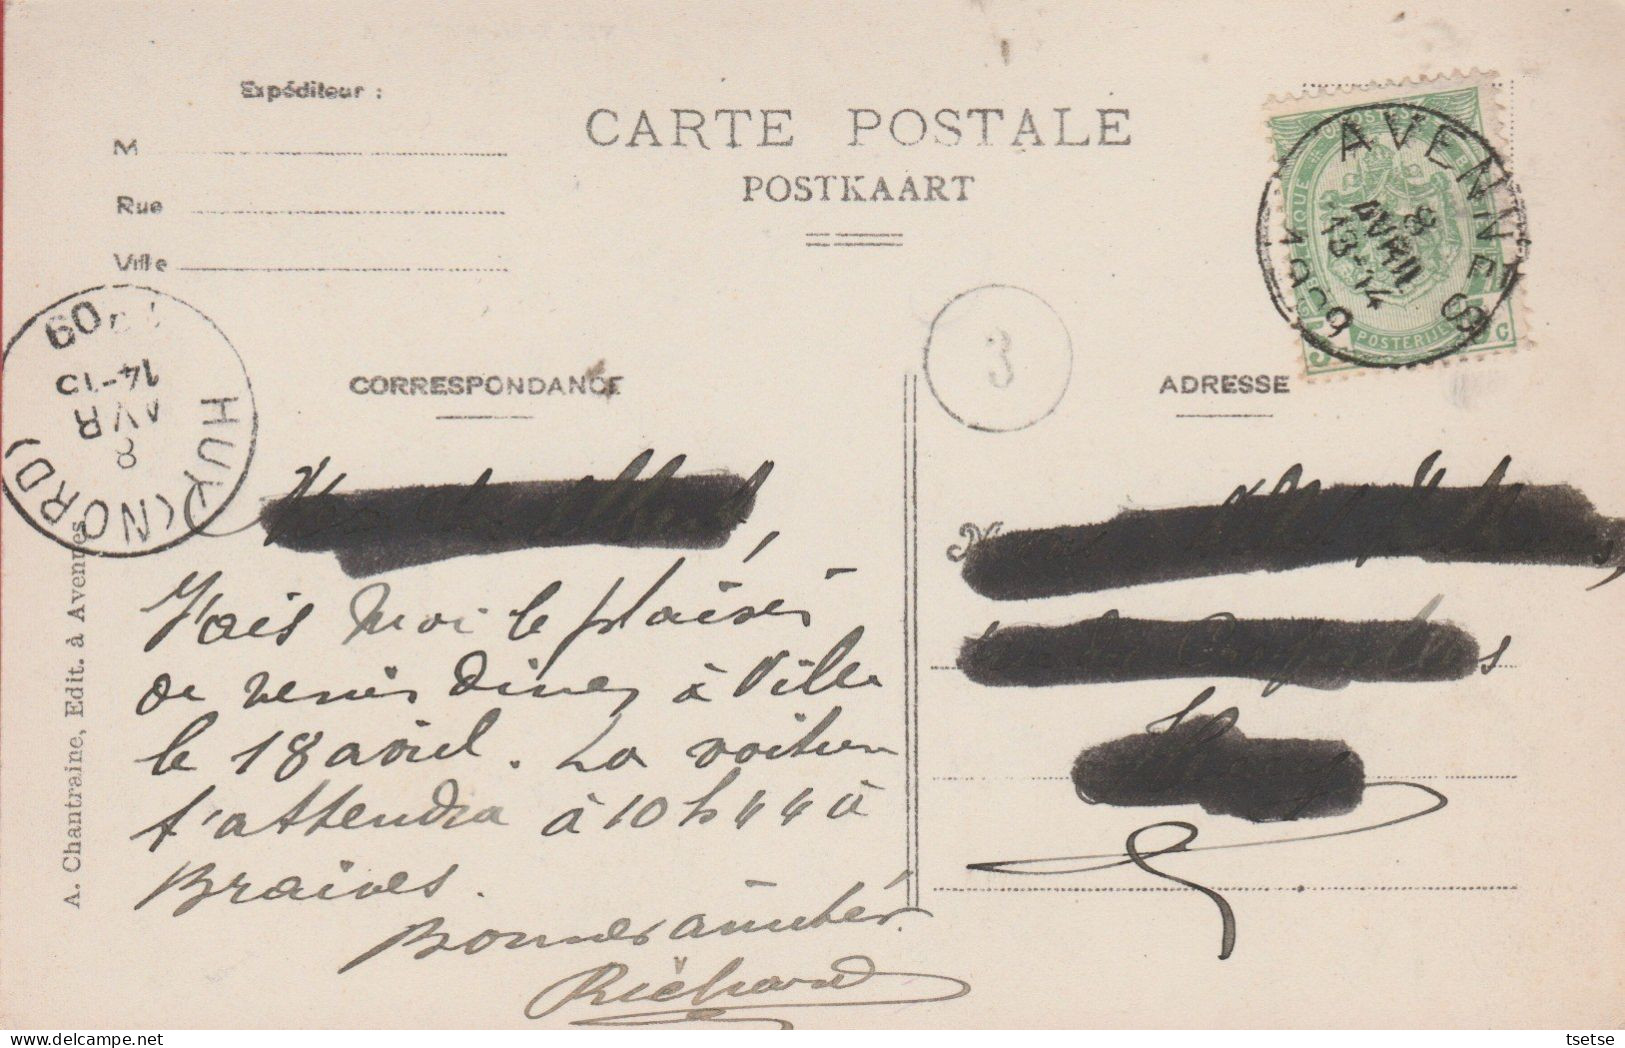 Expéditeur :
CARTE POSTALE
M
POSTKAART
Rue
Ville
AVENNES
8
AVRIL
13-14
09
1909
POSTERIJEN
HUY (NORD)
8
AVR
14-15
09
3
CORRESPONDANCE
ADRESSE
Fais moi le plaisir
de venir diner à Ville
le 18 avril. La voiture
t'attendra à 10 h 44 à
Braives.
Bonnes amitiés.
Richard
A. Chantraine, Edit. à Avennes
tsetse